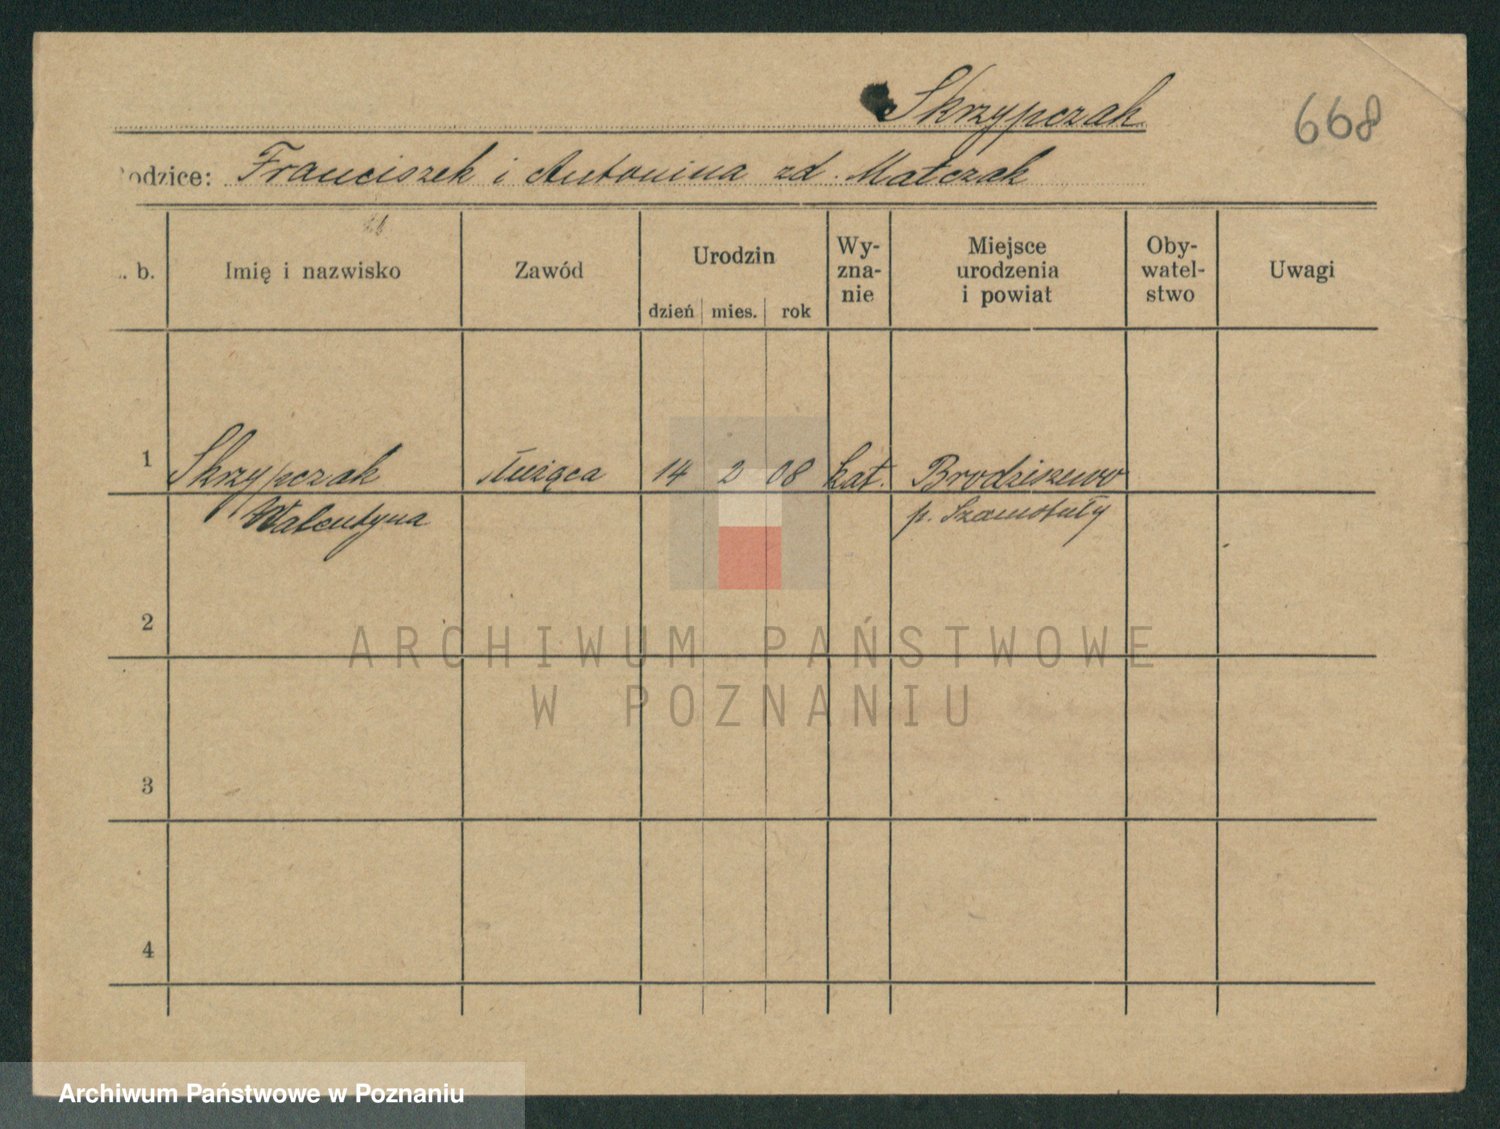 Skrzypczak
668
odzice: Franciszek i Antonina zd. Matczak
. b.
Imię i nazwisko
Zawód
Urodzin
dzień mies. rok
Wy-
zna-
nie
Miejsce
urodzenia
i powiat
Oby-
watel-
stwo
Uwagi
1 Skrzypczak służąca 14 2 08 kat. Brodziszewo
Walentyna p. Szamotuły
2
ARCHIWUM PAŃSTWOWE
W POZNANIU
3
4
Archiwum Państwowe w Poznaniu